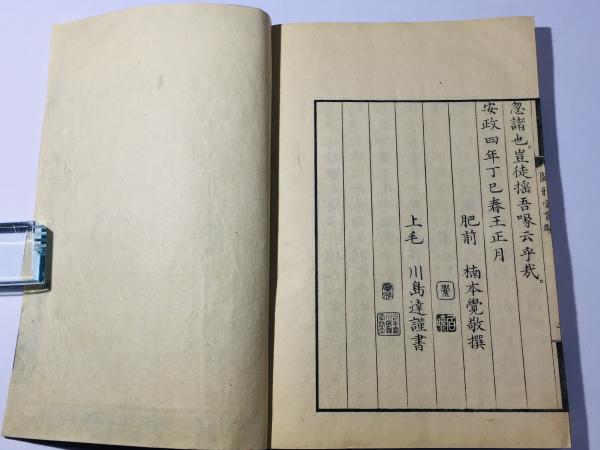 忽諸也。豈徒揺吾喙云乎哉。
安政四年丁巳春王正月
肥前 楠本覺敬撰
上毛 川島達謹書